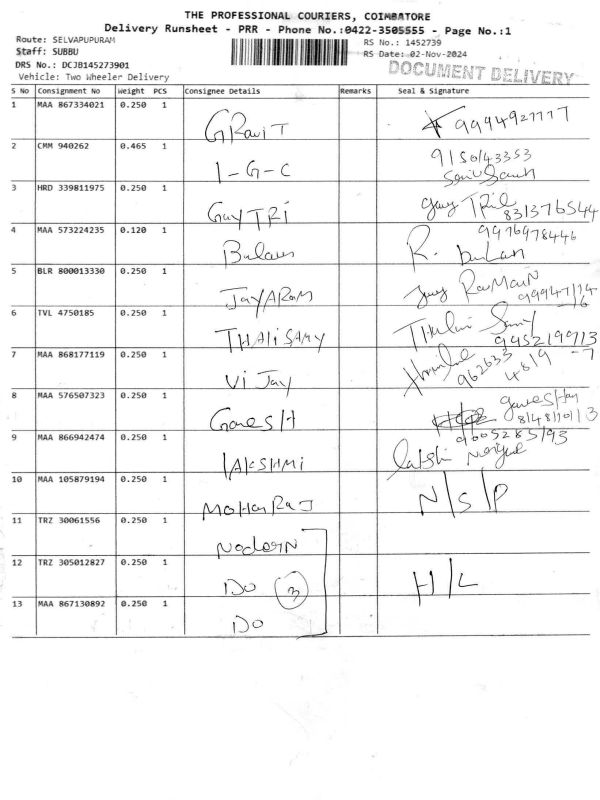 THE PROFESSIONAL COURIERS, COIMBATORE
Delivery Runsheet - PRR - Phone No.:0422-3505555 - Page No.:1
Route: SELVAPUPURAM
Staff: SUBBU
DRS No.: DCJB145273901
Vehicle: Two Wheeler Delivery
RS No.: 1452739
RS Date: 02-Nov-2024
DOCUMENT DELIVERY
S No Consignment No Weight PCS Consignee Details Remarks Seal & Signature
1 MAA 867334021 0.250 1 GRaviT 9994927777
2 CMM 940262 0.465 1 I-G-C 9150143353
3 HRD 339811975 0.250 1 GayTRi 831376544
4 MAA 573224235 0.120 1 R. 9976978446
5 BLR 800013330 0.250 1 JAYARAM
6 TVL 4750185 0.250 1 THALiSAMY
7 MAA 868177119 0.250 1 ViJay 962633 4819
8 MAA 576507323 0.250 1 GaneSH
9 MAA 866942474 0.250 1 LAKSHMi 9005285193
10 MAA 105879194 0.250 1 MOHANRAJ N/S/P
11 TRZ 30061556 0.250 1
12 TRZ 305012827 0.250 1 DO 3 H/L
13 MAA 867130892 0.250 1 DO